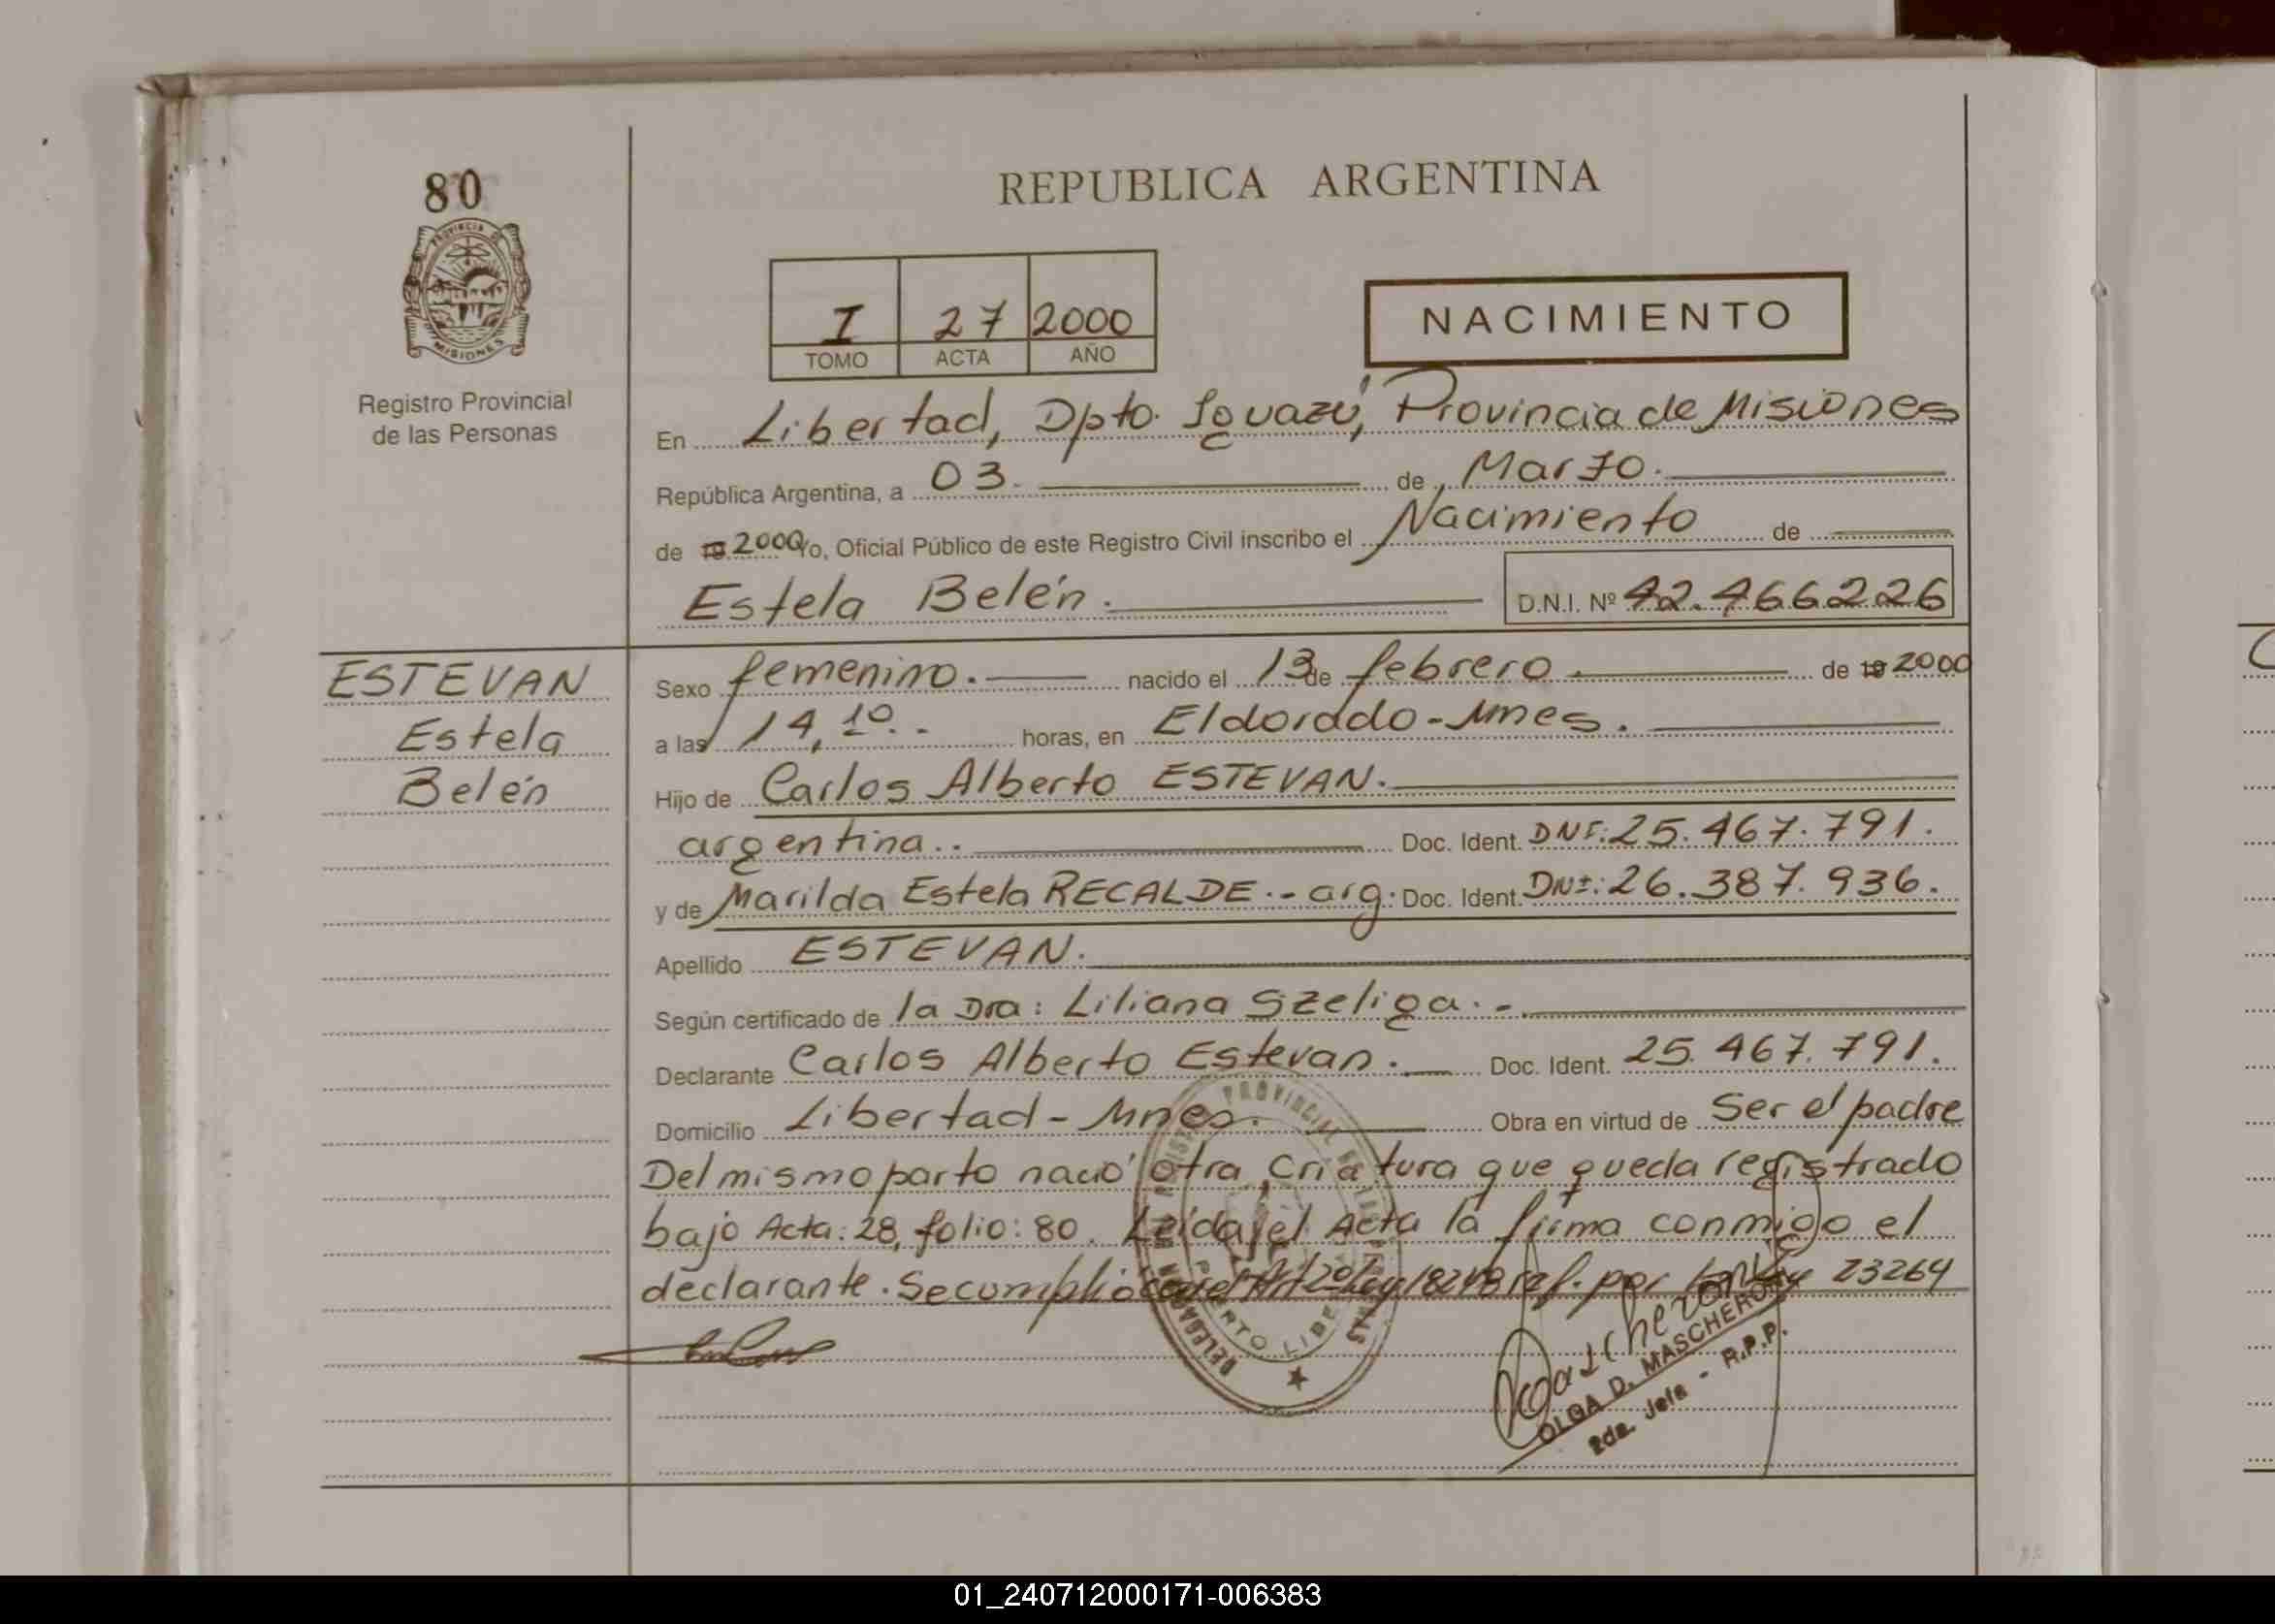 80
PROVINCIA DE
MISIONES
Registro Provincial
de las Personas
REPUBLICA ARGENTINA
I 27 2000
TOMO ACTA AÑO
NACIMIENTO
En Libertad, Dpto. Iguazú, Provincia de Misiones
República Argentina, a 03. de Marzo.
de 19 2000 Yo, Oficial Público de este Registro Civil inscribo el Nacimiento de
Estela Belén. D.N.I. Nº 42.466226
ESTEVAN
Estela
Belén
Sexo femenino. nacido el 13 de febrero. de 19 2000
a las 14,10.- horas, en Eldorado-Mnes.
Hijo de Carlos Alberto ESTEVAN.
argentina.. Doc. Ident. DNI: 25.467.791.
y de Marilda Estela RECALDE.- arg. Doc. Ident. DNI: 26.387.936.
Apellido ESTEVAN.
Según certificado de la Dra: Liliana Szeliga.-
Declarante Carlos Alberto Estevan. Doc. Ident. 25.467.791.
Domicilio Libertad-Mnes. Obra en virtud de Ser el padre
Del mismo parto nació otra criatura que queda registrado
bajo Acta: 28, folio: 80. Leída el Acta la firma conmigo el
declarante. Se cumplió con el Art 20 Ley 18248 ref. por Ley 23264
OLGA D. MASCHERONI
2da. Jefa - R.P.P.
01_240712000171-006383